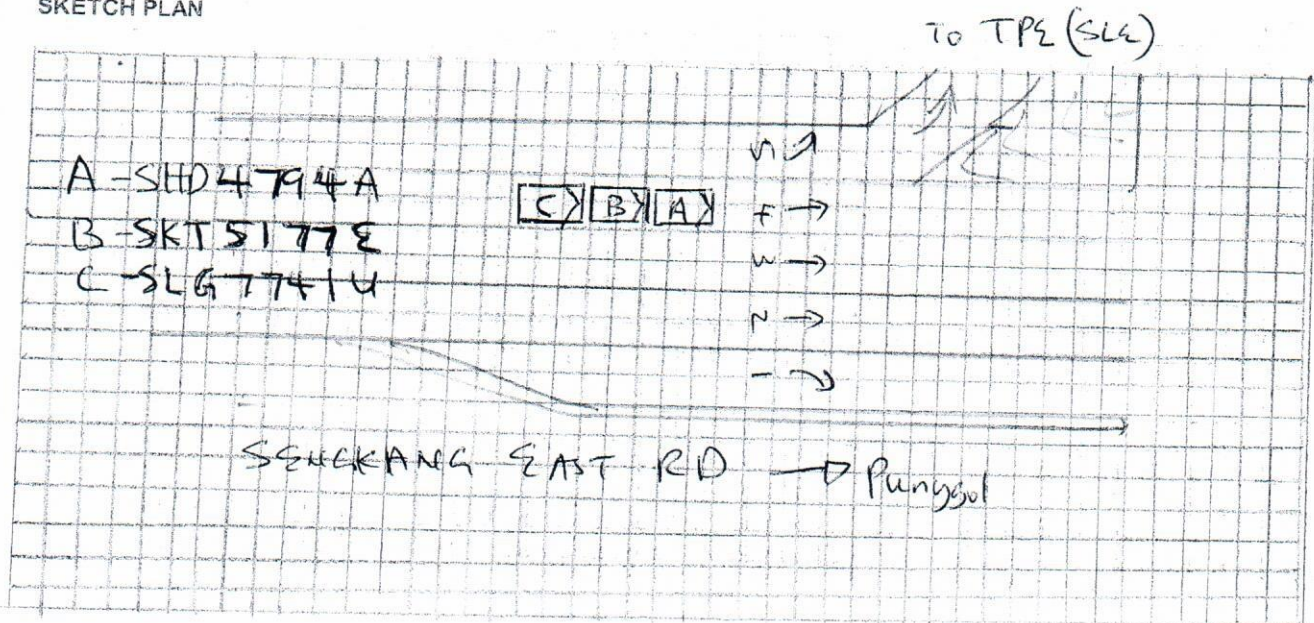 SKETCH PLAN
TO TPE (SLE)
A - SHD4794A
B - SKT5177E
C - SLG7741U
C B A
5
4
3
2
1
SENGKANG EAST RD → Punggol